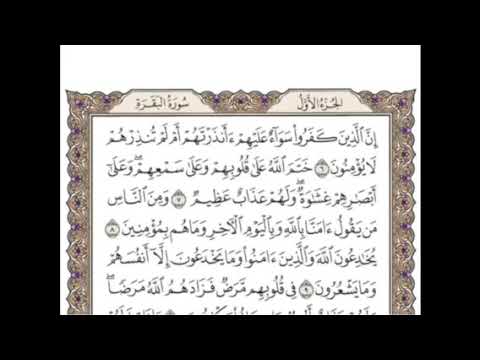 الجزء الأول
سورة البقرة
إِنَّ ٱلَّذِينَ كَفَرُواْ سَوَآءٌ عَلَيۡهِمۡ ءَأَنذَرۡتَهُمۡ أَمۡ لَمۡ تُنذِرۡهُمۡ
لَا يُؤۡمِنُونَ ٦ خَتَمَ ٱللَّهُ عَلَىٰ قُلُوبِهِمۡ وَعَلَىٰ سَمۡعِهِمۡۖ وَعَلَىٰٓ
أَبۡصَٰرِهِمۡ غِشَٰوَةٞۖ وَلَهُمۡ عَذَابٌ عَظِيمٞ ٧ وَمِنَ ٱلنَّاسِ
مَن يَقُولُ ءَامَنَّا بِٱللَّهِ وَبِٱلۡيَوۡمِ ٱلۡأٓخِرِ وَمَا هُم بِمُؤۡمِنِينَ ٨
يُخَٰدِعُونَ ٱللَّهَ وَٱلَّذِينَ ءَامَنُواْ وَمَا يَخۡدَعُونَ إِلَّآ أَنفُسَهُمۡ
وَمَا يَشۡعُرُونَ ٩ فِي قُلُوبِهِم مَّرَضٞ فَزَادَهُمُ ٱللَّهُ مَرَضٗاۖ